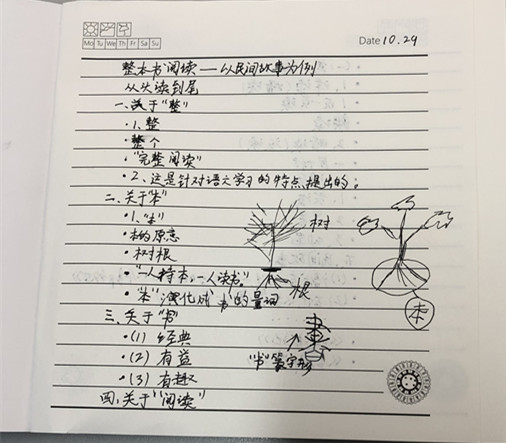 Mo Tu We Th Fr Sa Su
Date 10.29
整本书阅读——以民间故事为例
从头读到尾
一、关于“整”
·1、整
·整个
·“完整阅读”
·2、这是针对语文学习的特点提出的。
二、关于“本”
·1、“本”
·本的原意
·树根
·“一人持本,一人读书。”
·“本”演化成“书”的量词
树
根
本
三、关于“书”
·(1) 经典
·(2) 有益
·(3) 有趣
書
“书”篆字形
四、关于“阅读”